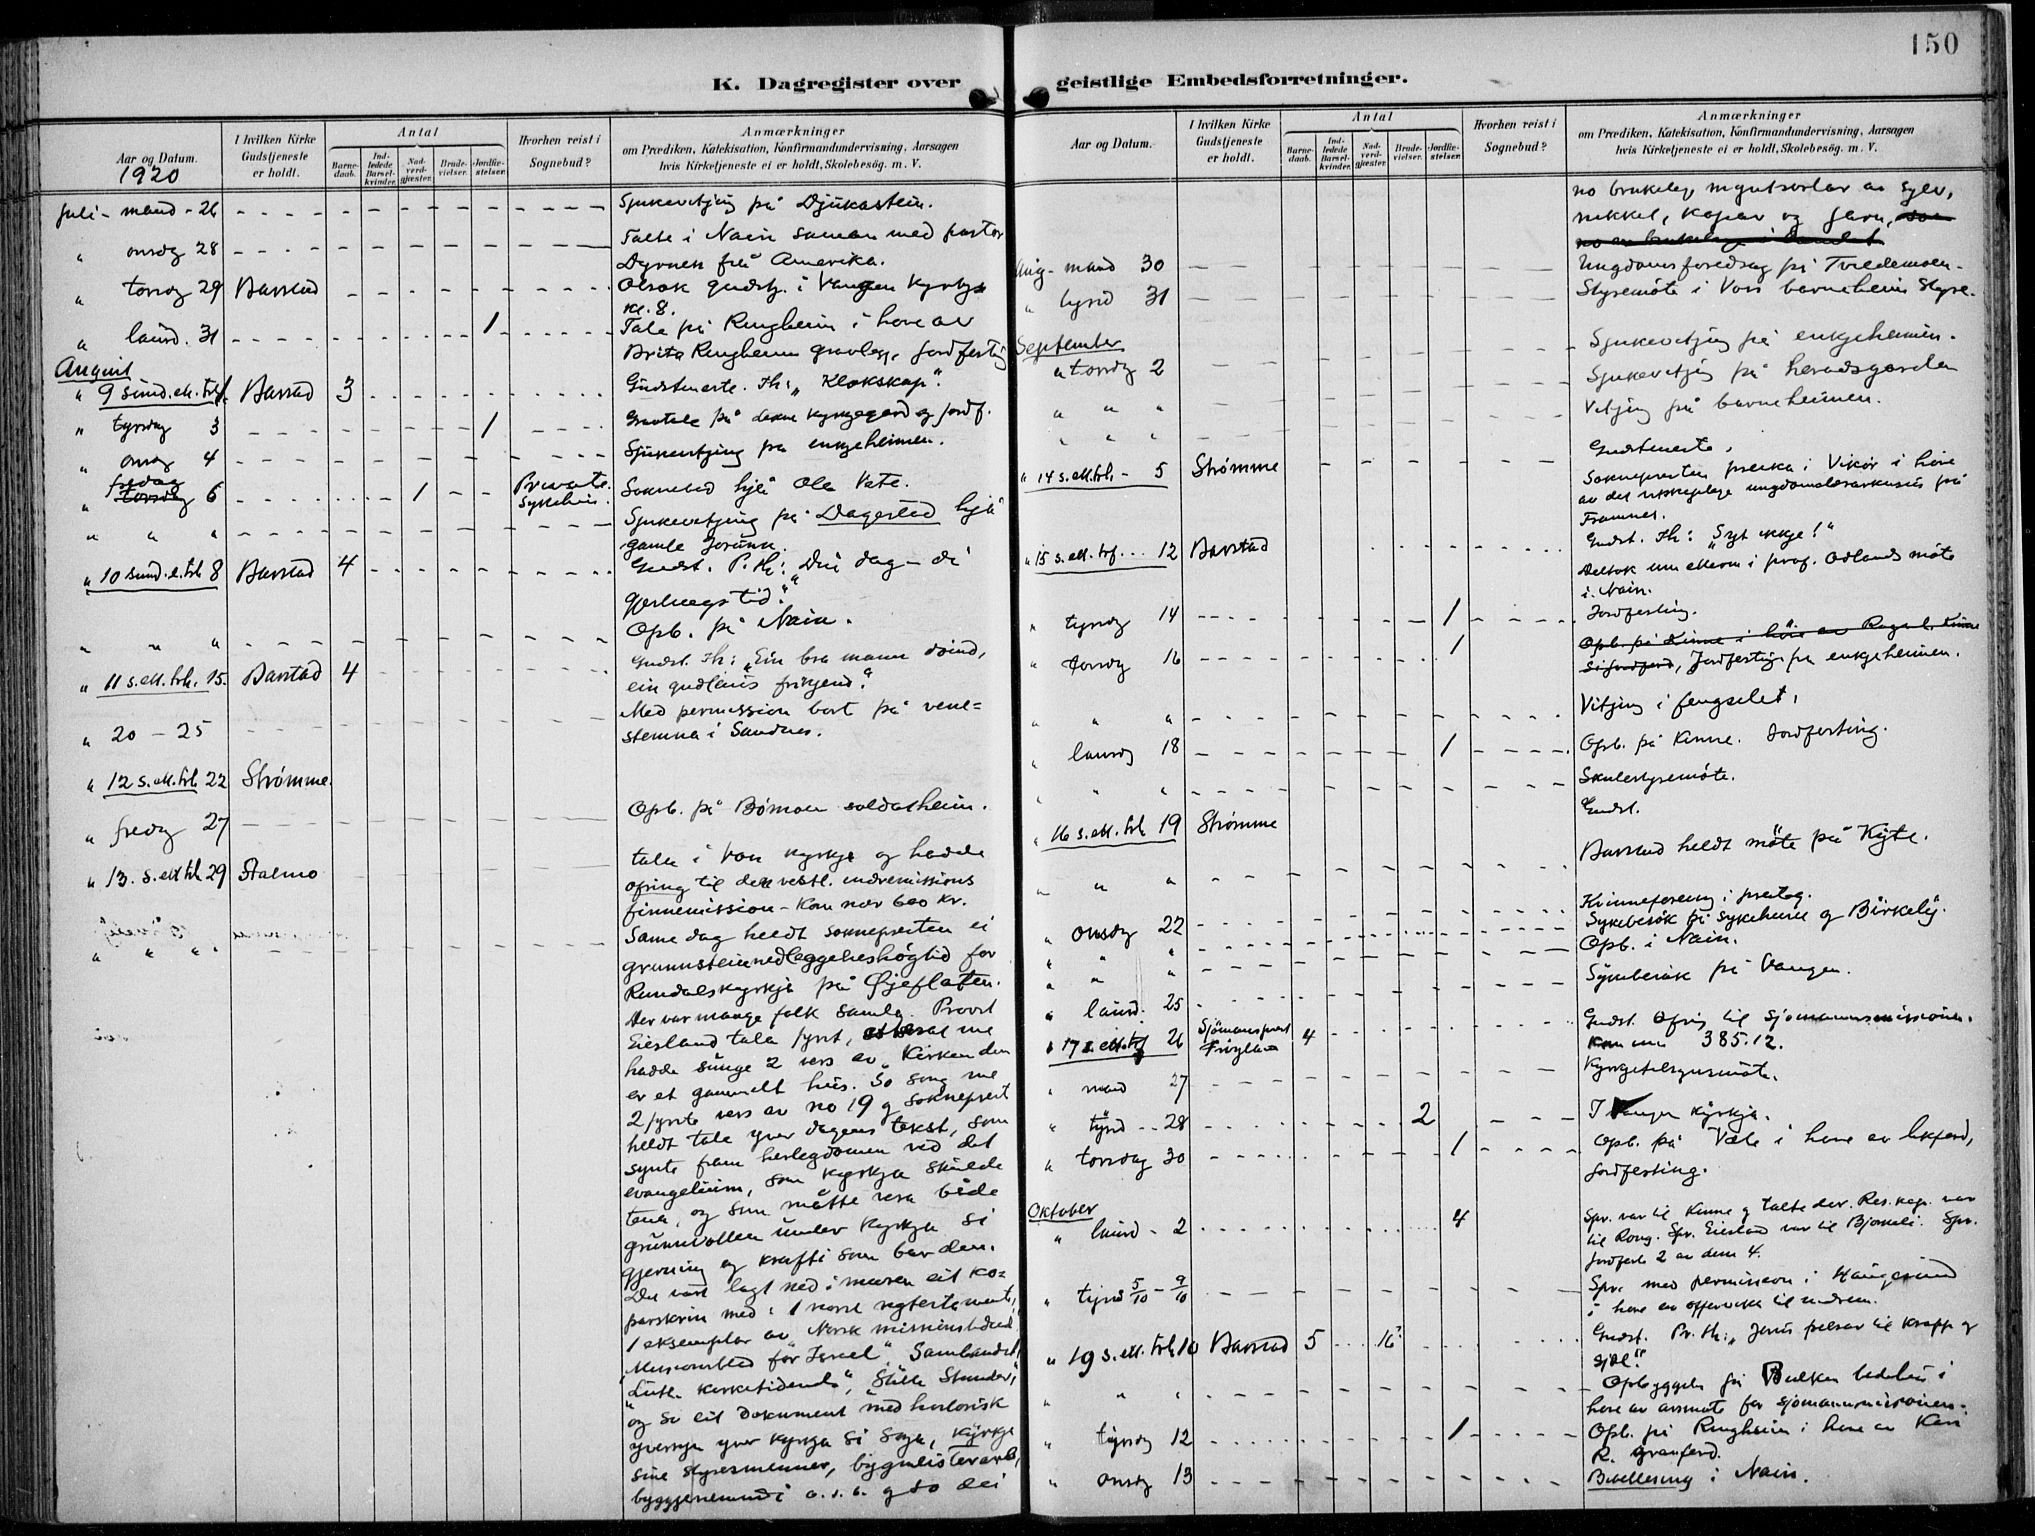 150
K. Dagregister over geistlige Embedsforretninger.
Aar og Datum. 1920
I hvilken Kirke Gudstjeneste er holdt.
Antal
Barnedaab.
Indledede Barselkvinder.
Nadverdgjæster.
Brudevielser.
Jordfæstelser.
Hvorhen reist i Sognebud?
Anmærkninger
om Prædiken, Katekisation, Konfirmandundervisning, Aarsagen
hvis Kirketjeneste ei er holdt, Skolebesøg. m. V.
Juli - mand - 26 Sjukevitjing på Djukastein.
" onsdg 28 Talte i Nain saman med pastor
Dyrnes frå Amerika.
" torsdg 29 Barstad Olsok gudstj. i Vangen kyrkje
kl. 8.
" laurd. 31 1 Tale på Ringheim i høve av
Brita Ringheims gravlegg, jordfesting
August
" 9 sund. ett. trf. Barstad 3 Gudsteneste. Th: "Klokskap".
" tyrsdg 3 1 Gravtale på kyrkjegard og jordf.
" onsdg 4 Sjukevitjing på enkjeheimen.
" fredag torsdg 6 1 Private Sykeheim. Soknebud hjå Ola Vete.
" " " Sjukevitjing på Dagestad hjå
gamle Jorunn.
" 10 sund. e. trf. 8 Barstad 4 Gudst. P. th: "Din dag - di
gjestings tid."
" " " Opb. på Nain.
" 11 s. ett. trf. 15. Barstad 4 Gudst. Th: "Ein bra mann
ein gudlaus
" 20 - 25 Med permission bort på vene=
stemna i Sandnes.
" 12 s. ett. trf. 22 Strømme.
" fredg 27 Opb. på Bømoen soldatheim.
" 13. s. ett trf. 29 Stalmo tala i Voss kyrkje og hadde
ofring til den vestl. indremissions
finnemission - kom nær 600 kr.
" " " Same dag heldt soknepresten ei
grunnsteinnedleggelseshögtid for
Rundalskyrkja på Øyeflaten.
Der var mange folk samla. Provst
Eiesland tala fyrst, me
hadde sunge 2 vers av Kirken den
er et gammelt hus. So song me
2 fyrste vers av no 19 og sokneprest
heldt tale yver dagens tekst, som
synte fram herlegdomen ved det
evangelium, som kyrkja skulde
tena, og som måtte vera både
grunnvollen under kyrkja si
gjerning og krafti som bar den.
Der vart lagt ned i muren eit ko=
parskrin med: 1 norsk nytestamente,
1 eksemplar av "Norsk missionstidende"
Missionsblad for Israel", Sambandet,
"Luth. kirketidende", Stille Stunder",
og so eit Dokument med historisk
yversyn yver kyrkja si soga, kyrkje
sine styresmenner, bygmeisterarb,
byggjenemndi o.s.b. og so dei
Aar og Datum.
I hvilken Kirke Gudstjeneste er holdt.
Antal
Barnedaab.
Indledede Barselkvinder.
Nadverdgjæster.
Brudevielser.
Jordfæstelser.
Hvorhen reist i Sognebud?
Anmærkninger
om Prædiken, Katekisation, Konfirmandundervisning, Aarsagen
hvis Kirketjeneste ei er holdt, Skolebesøg. m. V.
no brukelege myntsortar av sylv,
nikkel, kopar og jarn, som
no er brukelege i landet
Aug - mand 30 Ungdomsforedrag på Tvildemoen.
" tysd 31 Styremöte i Voss barneheim styre.
September
" torsdg 2 Sjukevitjing på enkjeheimen.
" " " Sjukevitjing på heradsgarden
" " " Vitjing på barneheimen.
" 14 s. ett. trf. - 5 Strømme Gudsteneste.
Soknepresten preika i Vikör i høve
av det ungdomsleiarkursus på
Framnes.
" 15 s. ett. trf. 12 Barstad Gudst. Th: "Syt ikkje!"
Deltok um ettern i prof. Odlands möte
i Nain.
" tyrsdg 14 1 Jordfesting.
" torsdg 16 1 Opb. på Kinne i høve av Kinne
Jordfesting fra enkjeheimen.
" " " Vitjing i fengselet.
" laurdg 18 1 Opb. på Kinne. Jordfesting.
" " " Skulestyremöte.
" 16 s. ett. trf. 19 Strømme Gudst.
" " " Barstad heldt möte på Kyte.
" onsdg 22 Kvinneforening i presteg.
" " " Sykebesök på sykeheim og Birkely.
" " " Opb. i Nain.
" laurd. 25 Sykebesök på Vangen.
" 17 s. ett. trf 26 Sjömansprest 4 Gudst. Ofring til sjömannsmissionen.
Kom inn 385.12.
" mand 27 Kyrkjetilsynsmöte.
" tysd 28 2 I Vangen kyrkja.
" torsdag 30 1 Opb. på Væte i høve av likferd,
Jordfesting.
Oktober
" laurd - 2 4 Spr. var til Kinne og talte der. Res. kap. var
til Rong. Spr. Eiesland var til Bjørneli. Spr.
Jordfest 2 av dem 4.
" tysd 5/10 - 9/10 Spr. med permission i Haugesund
i høve av offerveka til indrem.
" 19 s. ett. trf. 10 Barstad 5 16? Gudst. Pr. th: "Jesus frelsar til kropp og
sjæl."
" " Opbyggelse på Bulken bedehus i
høve av årsmöte for sjömannsmissionen.
" tyrsdg 12 1 Opb. på Ringheim i høve av Kari
R. gravferd.
" onsdg 13 Bibellesning i Nain.